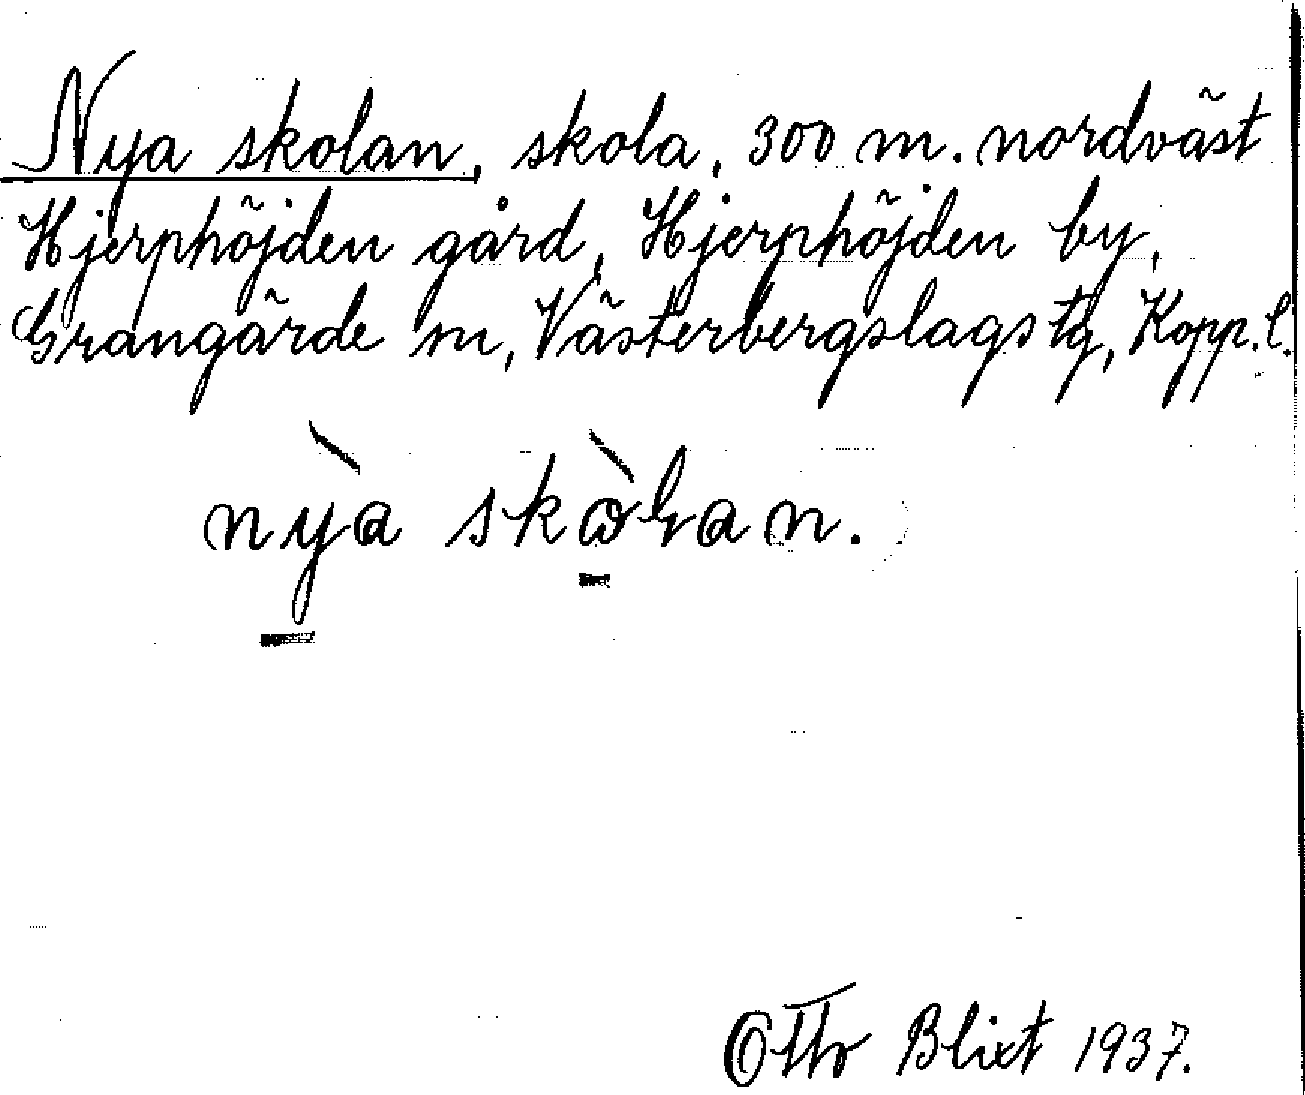 Nya skolan, skola, 300 m. nordväst
Hjerphöjden gård, Hjerphöjden by,
Grangärde sn, Västerbergslags tg, Kopp. l.
nỳa skòƚan.
Otto Blixt 1937.